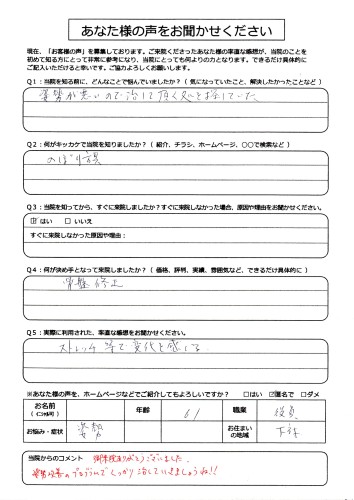 あなた様の声をお聞かせください
現在、「お客様の声」を募集しております。ご来院くださったあなた様の率直な感想が、当院のことを
初めて知る方にとって非常に参考になり、当院にとっても何よりの力となります。できるだけ具体的に
ご記入いただけると幸いです。ご協力よろしくお願いします。
Q1:当院を知る前に、どんなことで悩んでいましたか?(気になっていたこと、解決したかったことなど)
姿勢が悪いので治して頂く処を探していた
Q2:何がキッカケで当院を知りましたか?(紹介、チラシ、ホームページ、○○で検索など)
のぼり旗
Q3:当院を知ってから、すぐに来院しましたか?すぐに来院しなかった場合、原因や理由をお聞かせください。
☑はい □いいえ
すぐに来院しなかった原因や理由:
Q4:何が決め手となって来院しましたか?(価格、評判、実績、雰囲気など、できるだけ具体的に)
骨盤修正
Q5:実際に利用された、率直な感想をお聞かせください。
ストレッチ等で変化を感じてる
※あなた様の声を、ホームページなどでご紹介してもよろしいですか? □はい ☑匿名で □ダメ
お名前
(イニシャル可)
年齢
61
職業
役員
お悩み・症状
姿勢
お住まい
の地域
当院からのコメント
ありがとうございました。
姿勢改善のプログラムでしっかり治していきましょうね!!